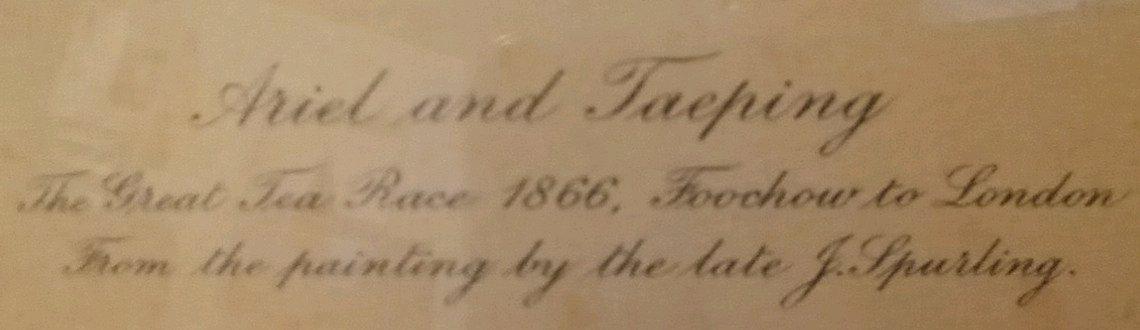 Ariel and Taeping
The Great Tea Race 1866, Foochow to London
From the painting by the late J. Spurling.